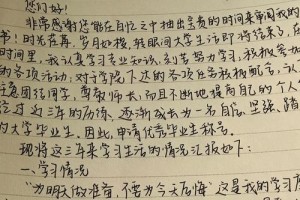 您们好！
非常感谢您能在百忙之中抽出宝贵的时间来审阅我的
书！时光荏苒，岁月如梭，转眼间大学生活即将结束，在
时间里，我认真学习专业知识，刻苦努力学习，积极参加
的各项活动，对于学院下达的各项任务积极配合，认
注意团结同学，尊敬师长，而且不断地提高自己的个人
经过近三年的历练，逐渐成长为一名自信、坚强、踏
的大学毕业生。因此，申请优秀毕业生称号。
现将这三年来学习生活的情况汇报如下：
一、学习情况
“为明天做准备，不要为今天后悔”这是我的学习